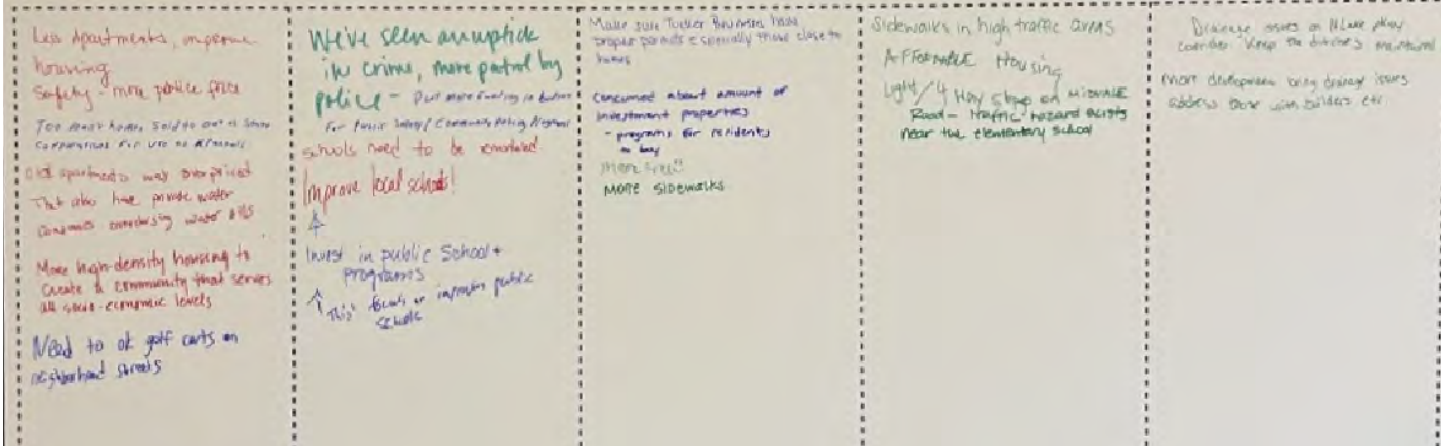 Less Apartments, improve
housing
Safety - more police force
Too many homes sold to out of State
Corporations for use as
Old apartments way overpriced
That also have private water
water bills
More high-density housing to
create a community that serves
all socio-economic levels
Need to ok golf carts on
neighborhood streets
We've seen an uptick
in crime, more patrol by
police - Put more funding in
For Public Safety / Community Policing Programs
schools need to be
Improve local schools!
Invest in public School +
programs
This focus on improving public
schools
Make sure Tucker have
proper permits especially those close to
homes
Concerned about amount of
investment properties
- programs for residents
to buy
More sidewalks
Sidewalks in high traffic areas
AFFORDABLE Housing
Light / 4 Way Stop on MIDVALE
Road - traffic hazard exists
near the elementary school
Drainage issues on
Keep the ditches maintained
more development bring drainage issues
address those with builders etc